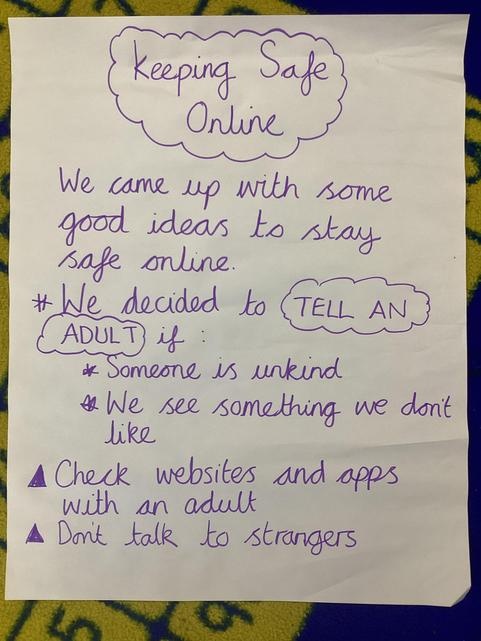 Keeping Safe
Online
We came up with some
good ideas to stay
safe online.
* We decided to TELL AN
ADULT if :
* Someone is unkind
* We see something we don't
like
▲ Check websites and apps
with an adult
▲ Don't talk to strangers